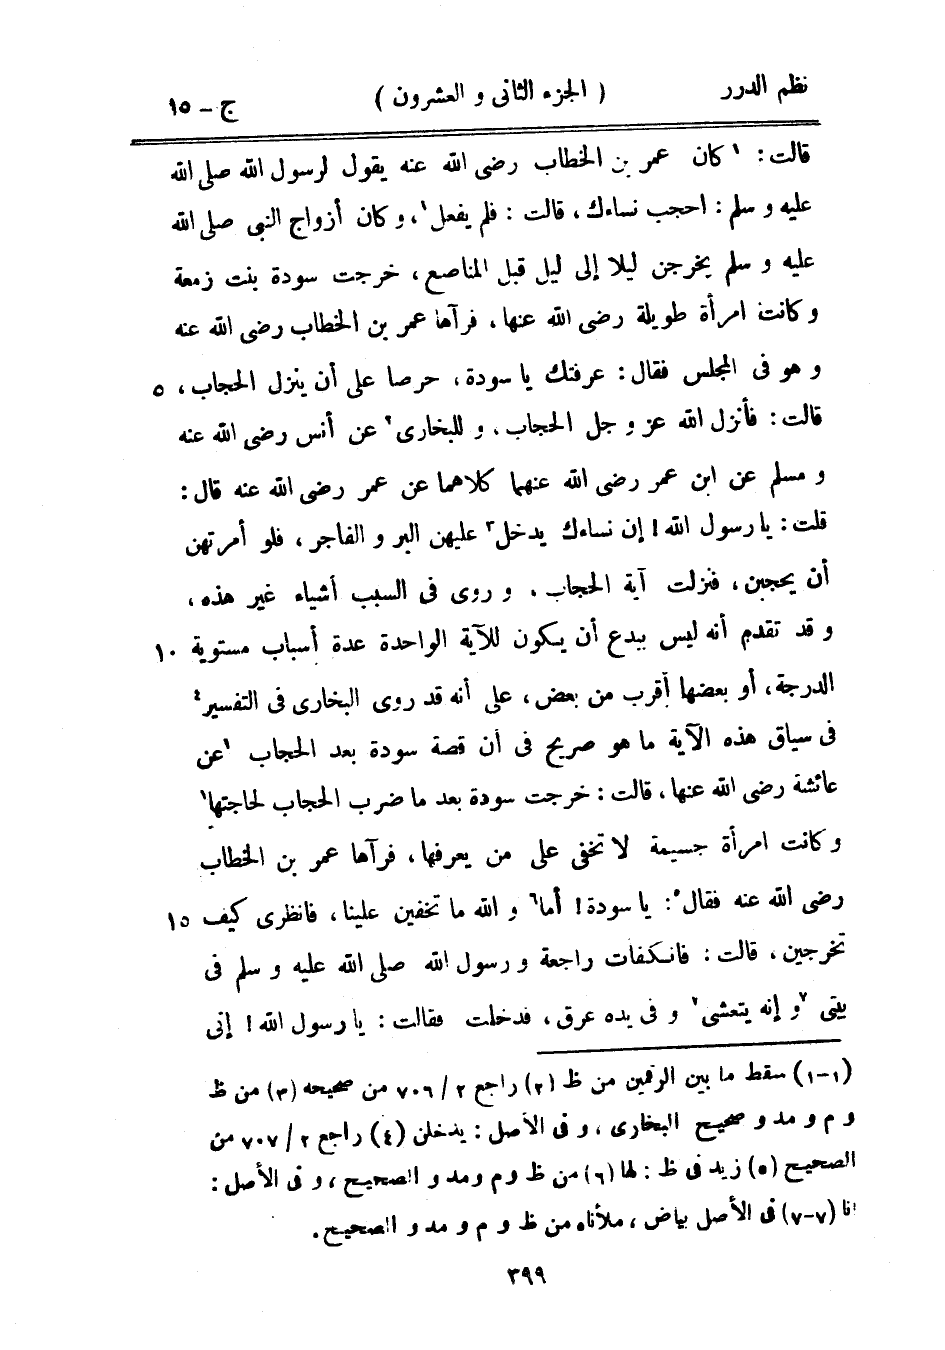 نظم الدرر ( الجزء الثانى و العشرون ) ج - ١٥
قالت : ١كان عمر بن الخطاب رضى الله عنه يقول لرسول الله صلى الله
عليه و سلم : احجب نساءك ، قالت : فلم يفعل١ ، و كان أزواج النبى صلى الله
عليه و سلم يخرجن ليلا إلى ليل قبل المناصع ، خرجت سودة بنت زمعة
و كانت امرأة طويلة رضى الله عنها ، فرآها عمر بن الخطاب رضى الله عنه
و هو فى المجلس فقال : عرفتك يا سودة ، حرصا على أن ينزل الحجاب ، ٥
قالت : فأنزل الله عز و جل الحجاب . و للبخارى٢ عن أنس رضى الله عنه
و مسلم عن ابن عمر رضى الله عنهما كلاهما عن عمر رضى الله عنه قال :
قلت : يا رسول الله ! إن نساءك يدخل٣ عليهن البر و الفاجر ، فلو أمرتهن
أن يحجبن ، فنزلت آية الحجاب . و روى فى السبب أشياء غير هذه ،
و قد تقدم أنه ليس ببدع أن يكون للآية الواحدة عدة أسباب مستوية ١٠
الدرجة ، أو بعضها أقرب من بعض ، على أنه قد روى البخارى فى التفسير٤
فى سياق هذه الآية ما هو صريح فى أن قصة سودة بعد الحجاب ١عن
عائشة رضى الله عنها ، قالت : خرجت سودة بعد ما ضرب الحجاب لحاجتها١
و كانت امرأة جسيمة لا تخفى على من يعرفها ، فرآها عمر بن الخطاب
رضى الله عنه فقال٥ : يا سودة ! أما٦ و الله ما تخفين علينا ، فانظرى كيف ١٥
تخرجين ، قالت : فانكفات راجعة و رسول الله صلى الله عليه و سلم فى
بيتى ٧و إنه يتعشى٧ و فى يده عرق ، فدخلت فقالت : يا رسول الله ! إنى
(١-١) سقط ما بين الرقمين من ظ (٢) راجع ٢ / ٧٠٦ من صحيحه (٣) من ظ
و م و مد و صحيح البخارى ، و فى الأصل : يدخلن (٤) راجع ٢ / ٧٠٧ من
الصحيح (٥) زيد فى ظ : لها (٦) من ظ و م و مد و الصحيح ، و فى الأصل :
انا (٧-٧) فى الأصل بياض ، ملأناه من ظ و م و مد و الصحيح .
٣٩٩